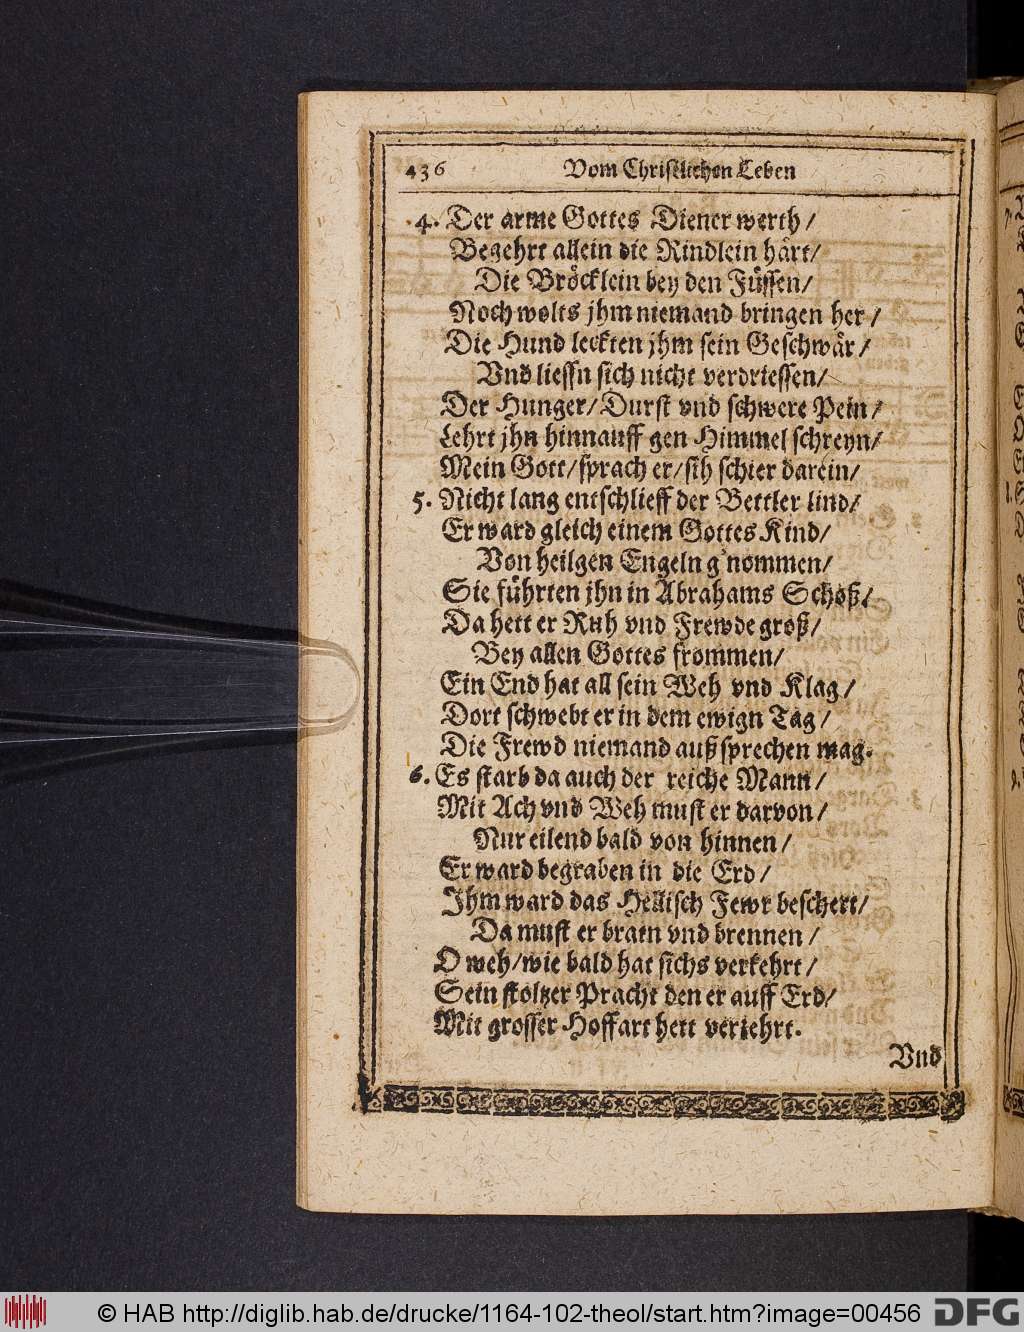 436 Vom Christlichen Leben
4. Der arme Gottes Diener werth /
Begehrt allein die Rindlein härt/
Die Bröcklein bey den Füssen/
Noch wolts jhm niemand bringen her /
Die Hund leckten jhm sein Geschwär /
Vnd liessn sich nicht verdriessen/
Der Hunger/ Durst vnd schwere Pein /
Lehrt jhn hinnauff gen Himmel schreyn/
Mein Gott/ sprach er/ sih schier darein/
5. Nicht lang entschlieff der Bettler lind/
Er ward gleich einem Gottes Kind/
Von heilgen Engeln g'nommen/
Sie führten jhn in Abrahams Schoß/
Da hett er Ruh vnd Frewde groß/
Bey allen Gottes frommen/
Ein End hat all sein Weh vnd Klag /
Dort schwebt er in dem ewign Tag /
Die Frewd niemand außsprechen mag.
6. Es starb da auch der reiche Mann /
Mit Ach vnd Weh must er darvon/
Nur eilend bald von hinnen /
Er ward begraben in die Erd /
Jhm ward das Hellisch Fewr beschert/
Da must er bratn vnd brennen /
O weh/ wie bald hat sichs verkehrt /
Sein stoltzer Pracht den er auff Erd/
Mit grosser Hoffart hett verzehrt.
Vnd
© HAB http://diglib.hab.de/drucke/1164-102-theol/start.htm?image=00456
DFG